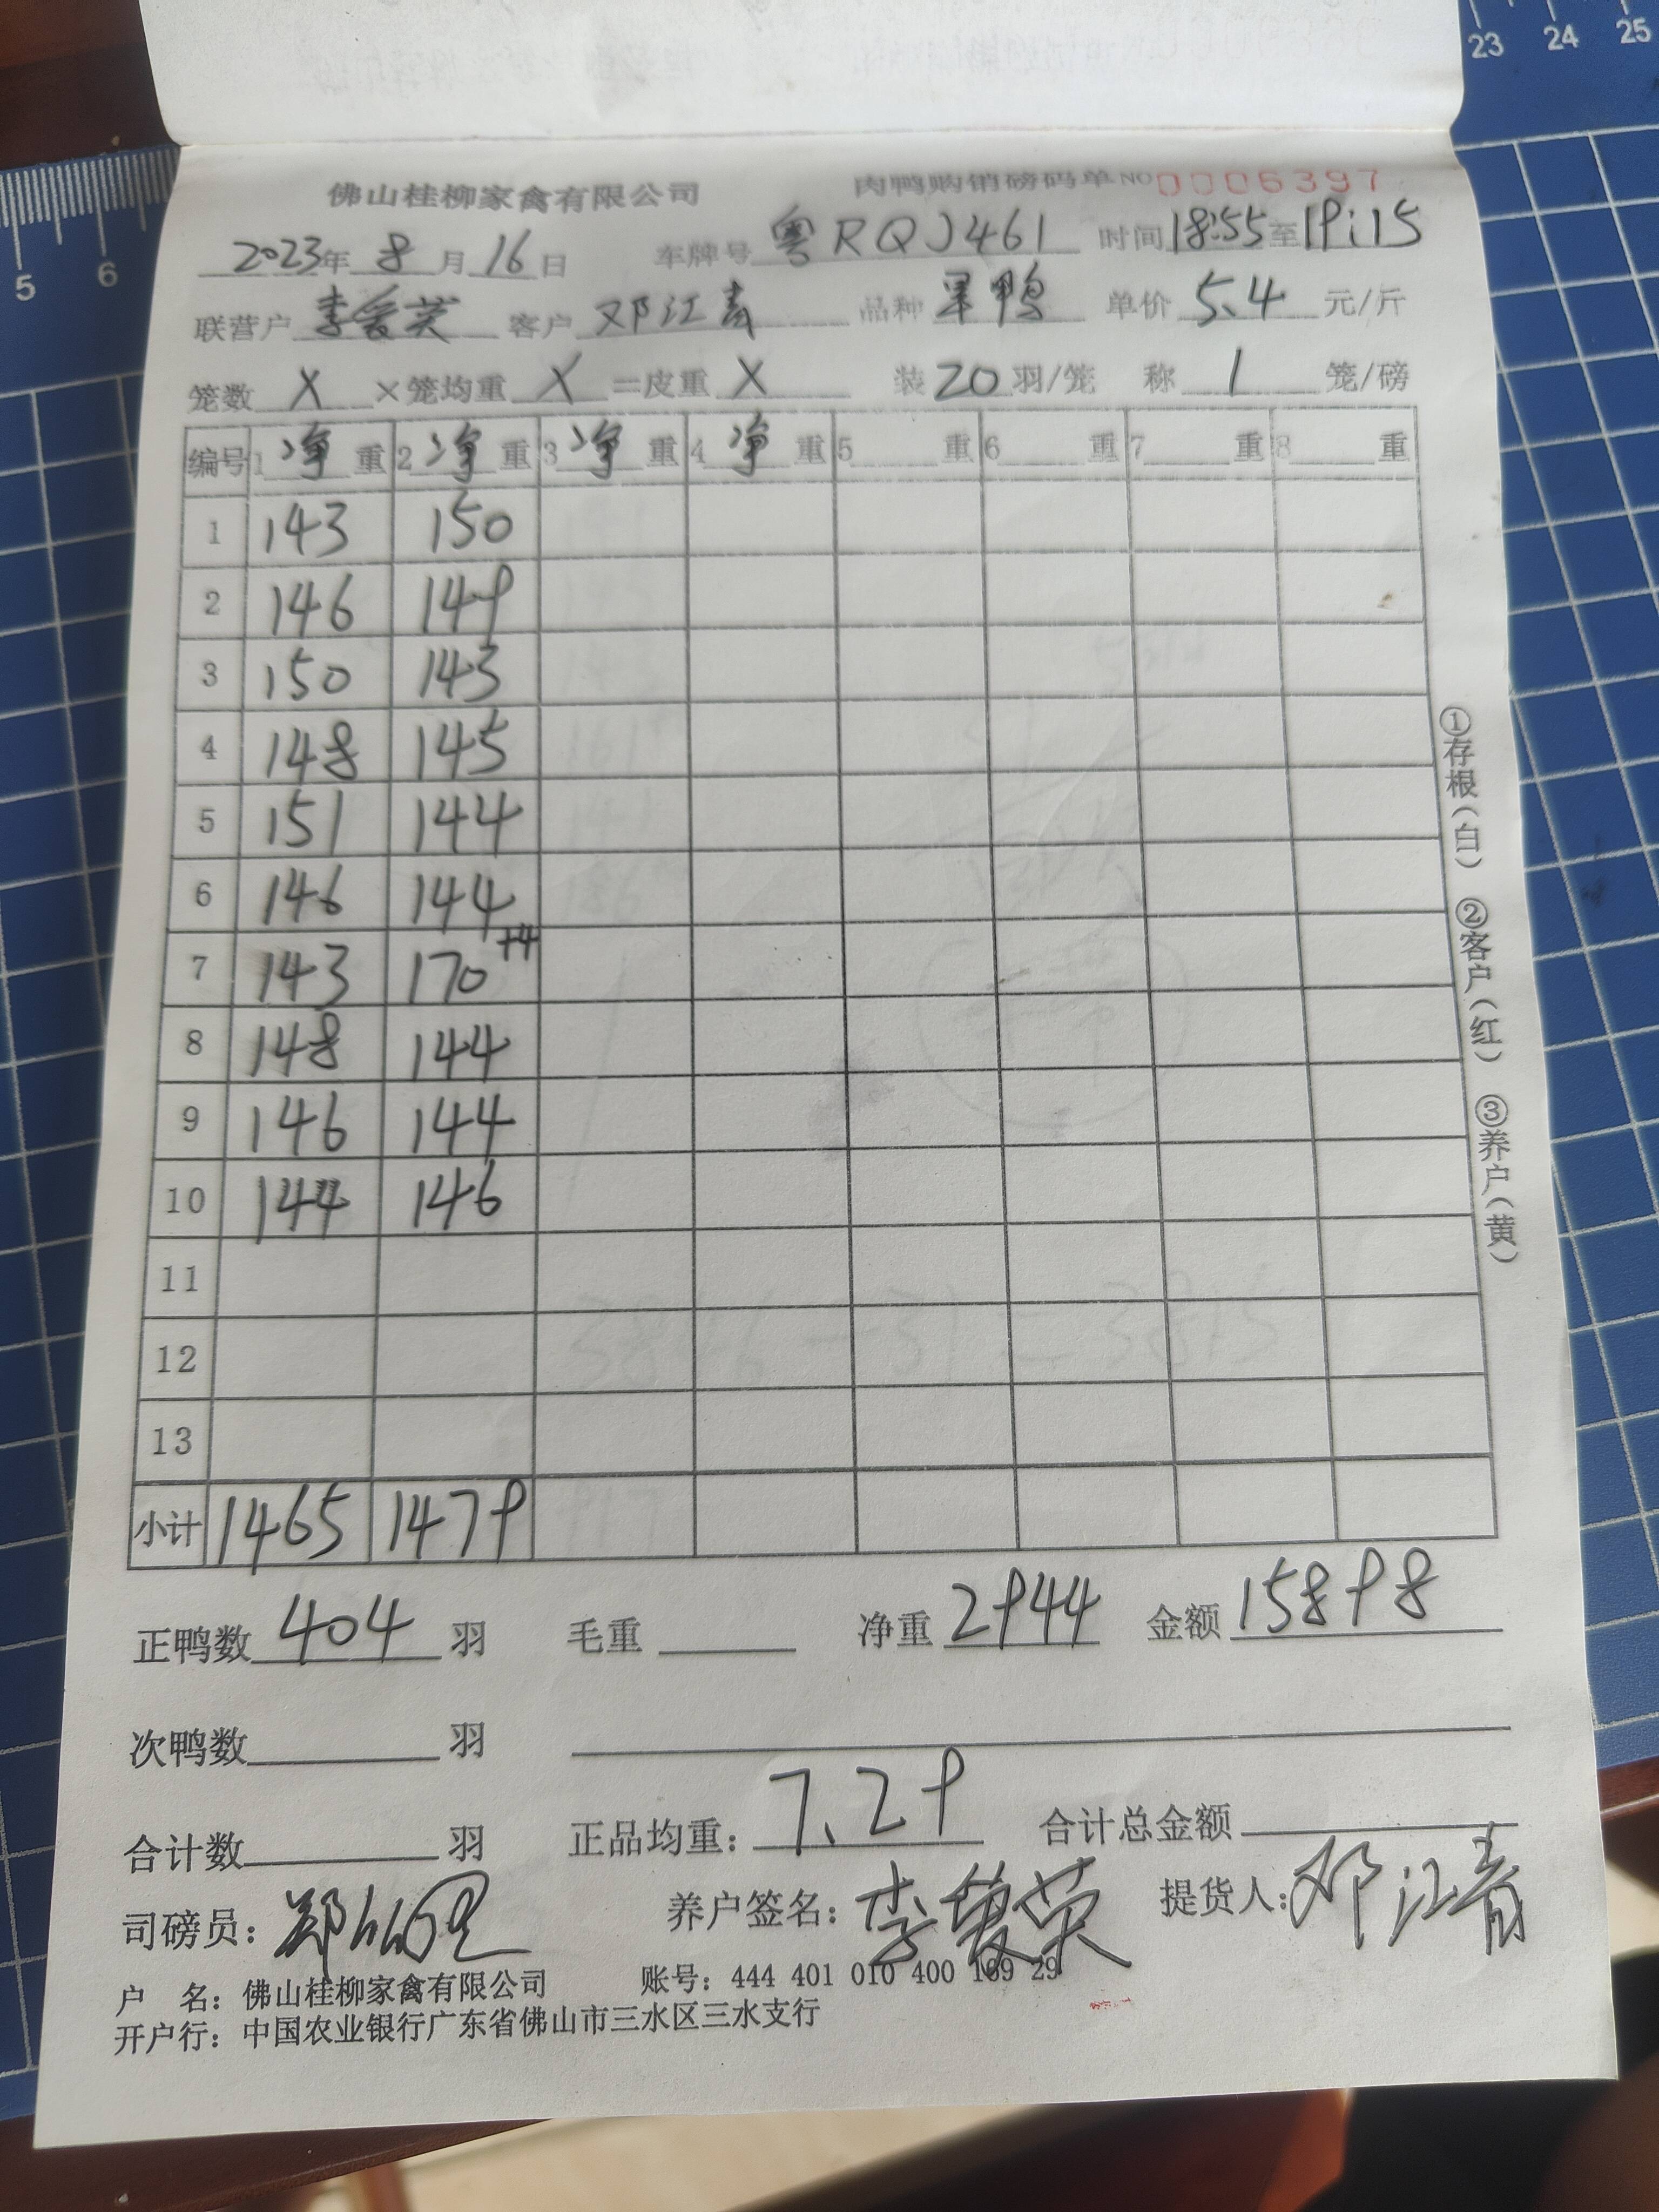 23 24 25
5 6
佛山桂柳家禽有限公司 肉鸭购销磅码单 NO 0006397
2023年 8月16日 车牌号 粤RQJ461 时间18:55至19:15
联营户 李爱英 客户 邓江青 品种 单价 5.4 元/斤
笼数 X ×笼均重 X =皮重 X 装20羽/笼 称 1 笼/磅
编号 1净重 2净重 3净重 4净重 5重 6重 7重 8重
1 143 150
2 146 149
3 150 143
4 148 145
5 151 144
6 146 144
7 143 170 +4
8 148 144
9 146 144
10 144 146
11
12
13
小计 1465 1479
正鸭数 404 羽 毛重 净重 2944 金额 15898
次鸭数 羽
合计数 羽 正品均重： 7.29 合计总金额
司磅员： 养户签名： 提货人：邓江青
户 名：佛山桂柳家禽有限公司 账号：444 401 010 400 169 29
开户行：中国农业银行广东省佛山市三水区三水支行
①存根（白） ②客户（红） ③养户（黄）